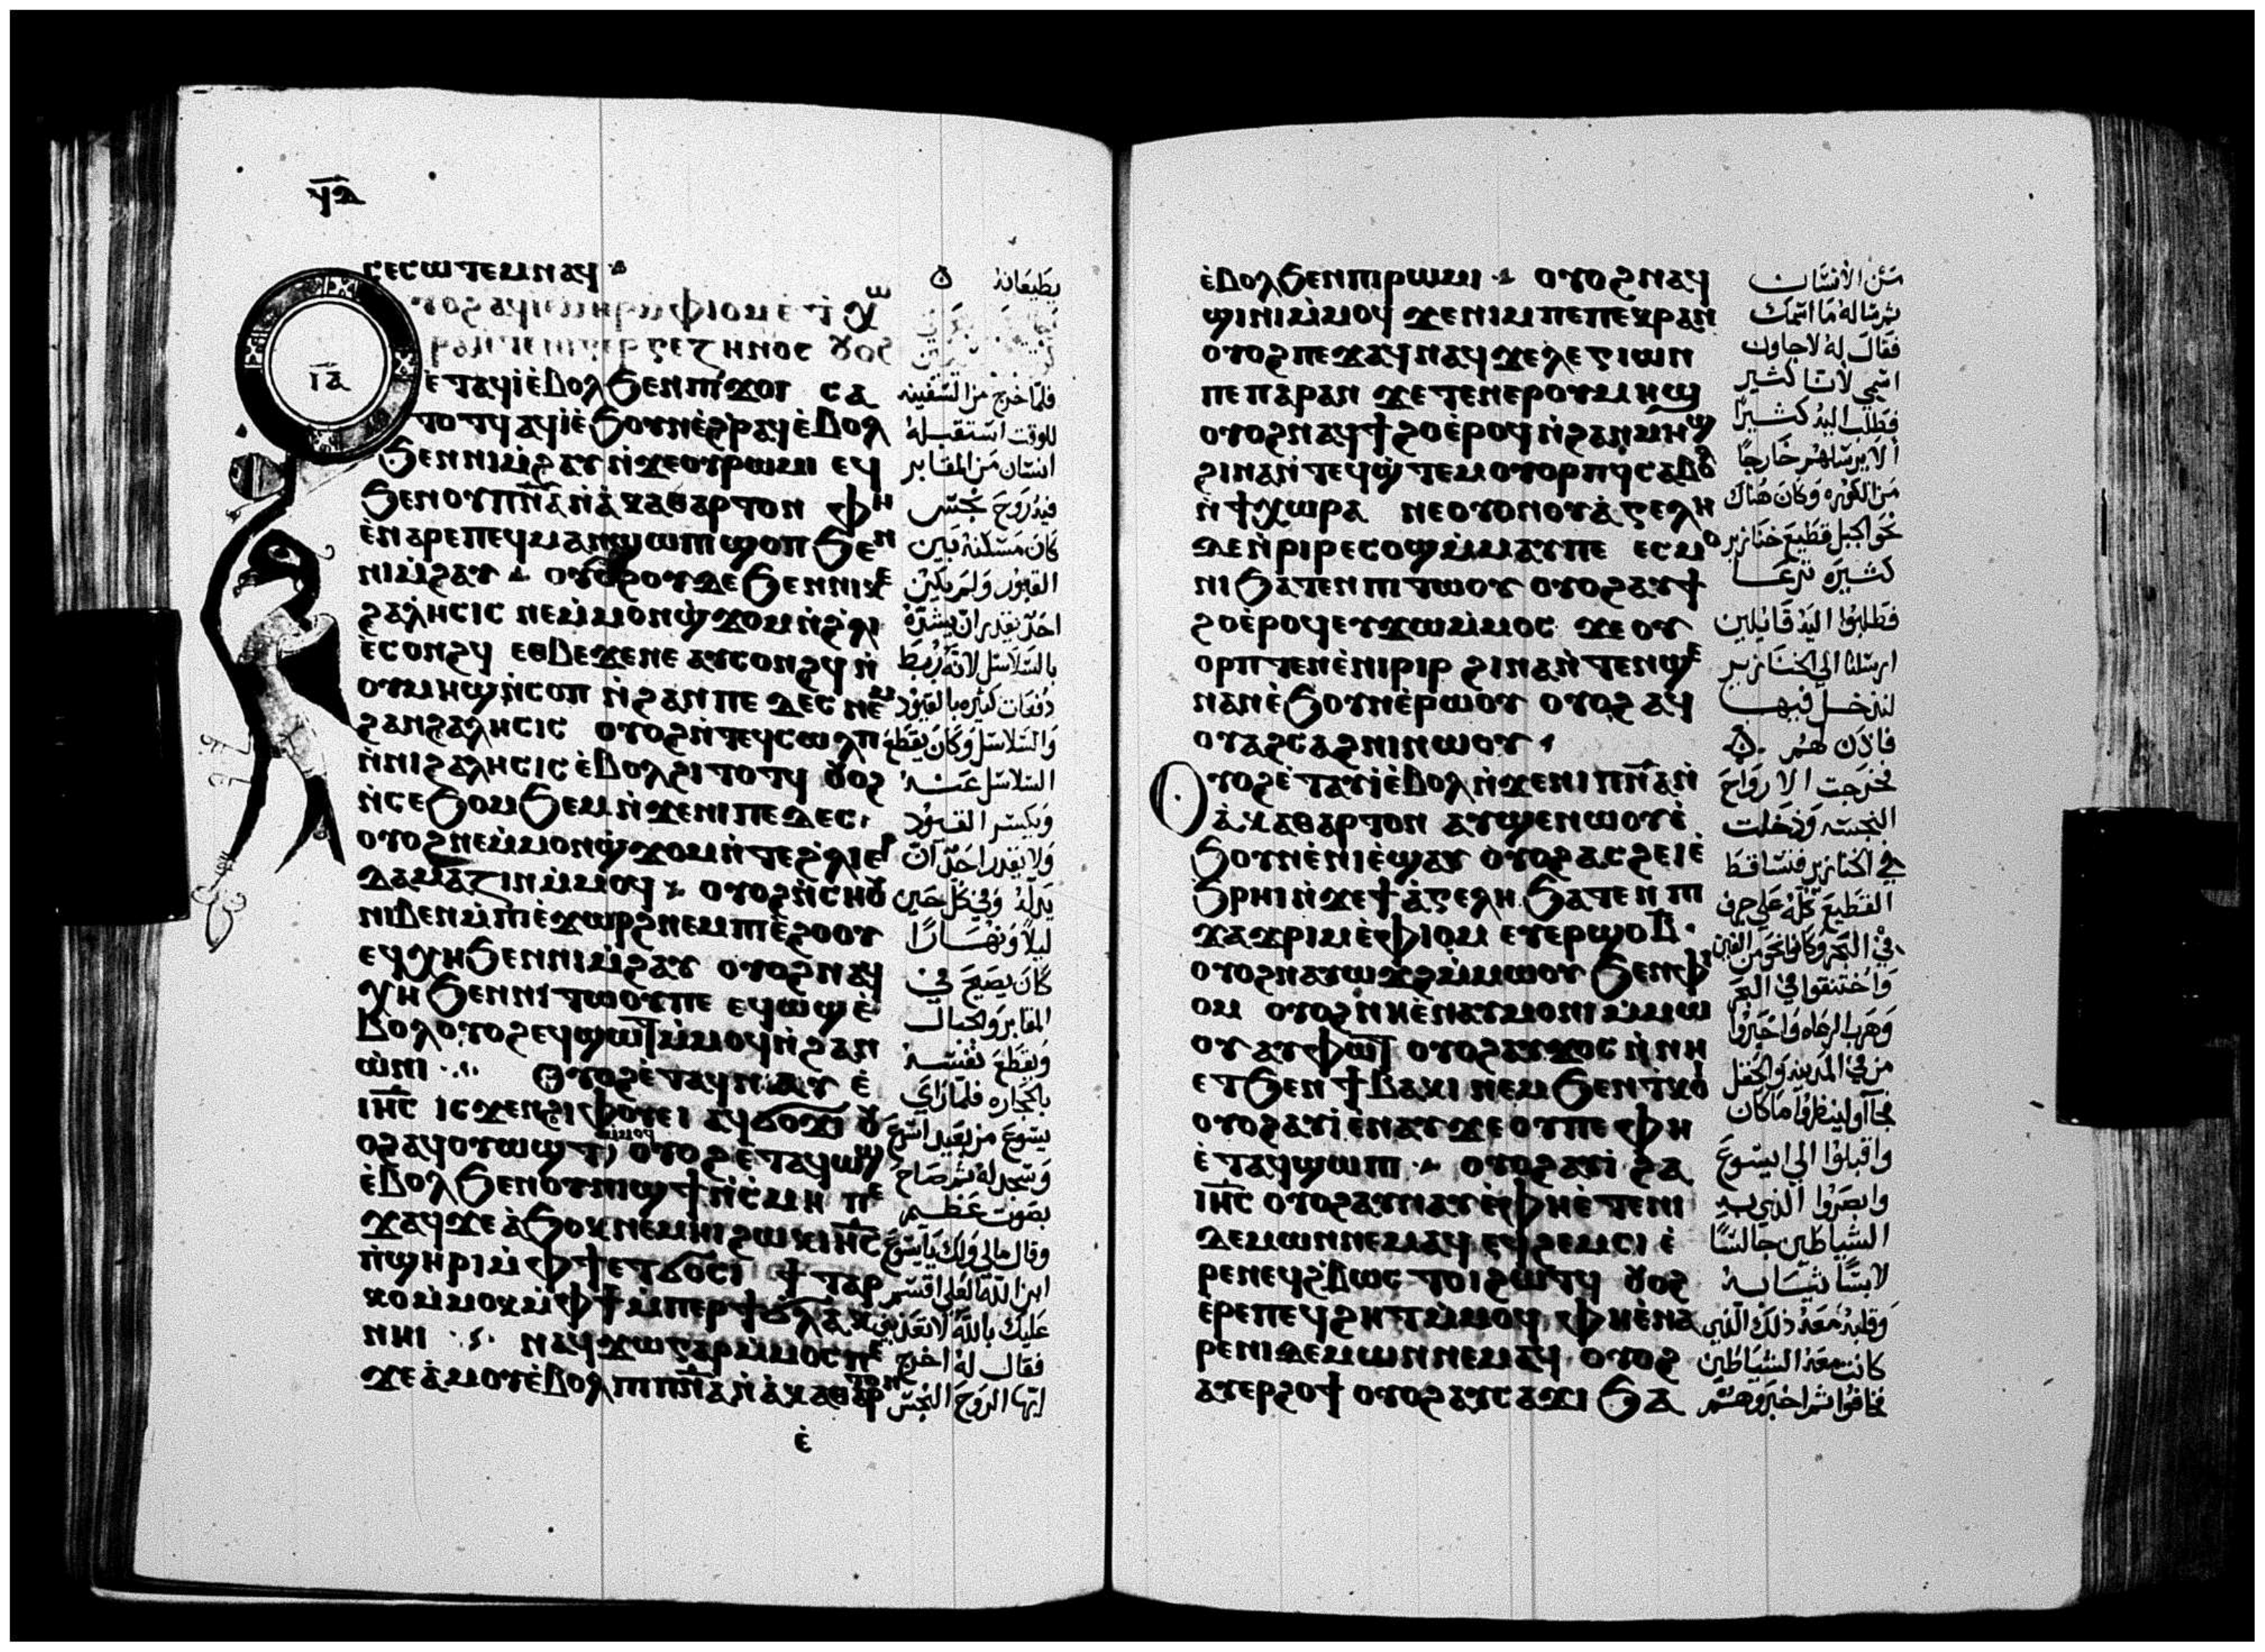 ϥⲁ
ⲥⲉⲥⲱⲧⲉⲙ ⲛⲁϥ
ⲓⲁ
ⲉⲧⲁϥⲓ̀ⲉ̀ⲃⲟⲗϧⲉⲛⲡⲓϫⲟⲓ ⲥⲁ
ⲧⲟⲧϥ ⲁϥⲓ̀ⲉ̀ϧⲟⲩⲛⲉ̀ϩⲣⲁϥ ⲉ̀ⲃⲟⲗ
ϧⲉⲛⲛⲓⲙ̀ϩⲁⲩ ⲛ̀ϫⲉⲟⲩⲣⲱⲙⲓ ⲉϥ
ϧⲉⲛⲟⲩⲡⲛ̅ⲁ̅ⲛ̀ⲁ̀ⲕⲁⲑⲁⲣⲧⲟⲛ ⲫⲏ
ⲉ̀ⲛⲁⲣⲉⲡⲉϥⲙⲁⲛϣⲱⲡⲓ ϣⲟⲡ ϧⲉⲛ
ⲛⲓⲙ̀ϩⲁⲩ ⲟⲩⲇⲉ ϧⲉⲛⲛⲓⲕⲉ
ϩⲁⲗⲏⲥⲓⲥ ⲛⲉⲙ̀ⲙⲟⲛϣ̀ϫⲟⲙ ⲛ̀ϩ̀ⲗⲓ
ⲉ̀ⲥⲟⲛϩϥ ⲉⲑⲃⲉϫⲉⲛⲉ ⲁⲩⲥⲟⲛϩϥ ⲛ̀
ⲟⲩⲙⲏϣ ⲛ̀ⲥⲟⲡ ⲛ̀ϩⲁⲛⲡⲉⲇⲉⲥ ⲛⲉⲙ
ϩⲁⲛϩⲁⲗⲏⲥⲓⲥ ⲟⲩⲟϩⲛ̀ⲧⲉϥⲥⲱⲗⲡ
ⲛ̀ⲛⲓϩⲁⲗⲏⲥⲓⲥ ⲉ̀ⲃⲟⲗϩⲓⲧⲟⲧϥ ⲟⲩⲟϩ
ⲛ̀ⲥⲉϧⲟⲙϧⲉⲙ ⲛ̀ϫⲉⲛⲓⲡⲉⲇⲉⲥ
ⲟⲩⲟϩⲛⲉⲙ̀ⲙⲟⲛϣ̀ϫⲟⲙ ⲛ̀ⲧⲉϩ̀ⲗⲓⲉⲣ
ⲇⲁⲙⲁⲍⲓⲛ ⲙ̀ⲙⲟϥ ⲟⲩⲟϩⲛ̀ⲥⲏⲟⲩ
ⲛⲓⲃⲉⲛ ⲙ̀ⲡⲓⲉ̀ϫⲱⲣϩ ⲛⲉⲙⲡⲓⲉ̀ϩⲟⲟⲩ
ⲉϥⲭⲏ ϧⲉⲛⲛⲓⲙ̀ϩⲁⲩ ⲟⲩⲟϩⲛⲁϥ
ⲭⲏ ϧⲉⲛⲛⲓⲧⲱⲟⲩⲡⲉ ⲉϥⲱϣ ⲉ̀
ⲃⲟⲗ ⲟⲩⲟϩⲉϥϣⲱⲧ ⲙ̀ⲙⲟϥ ⲛ̀ϩⲁⲛ
ⲱ̀ⲛⲓ ⲟⲩⲟϩⲉ̀ⲧⲁϥⲛⲁⲩ ⲉ̀
ⲓⲏ̅ⲥ ⲓⲥϫⲉⲛϩⲓⲫⲟⲩⲉⲓ ⲁϥϭⲟϫⲓ ⲟⲩ
ⲟϩⲁϥⲟⲩⲱϣⲧ ⲙ̀ⲙⲟϥ ⲟⲩⲟϩⲉ̀ⲧⲁϥⲱϣ
ⲉ̀ⲃⲟⲗ ϧⲉⲛⲟⲩⲛⲓϣϯⲛ̀ⲥ̀ⲙⲏ ⲡⲉ
ϫⲁϥϫⲉ ⲁ̀ϧⲟⲕ ⲛⲉⲙⲏⲓ ϩⲱⲕ ⲓⲏ̅ⲥ
ⲡ̀ϣⲏⲣⲓⲙ̀ⲫϯⲉⲧϭⲟⲥⲓ ϯⲧⲁⲣ
ⲕⲟⲙ̀ⲙⲟⲕⲙ̀ⲫϯ ⲙ̀ⲡⲉⲣϯ
ⲛⲏⲓ ⲛⲁϥϫⲱⲅⲁⲣⲙ̀ⲙⲟⲥⲡⲉ
ϫⲉⲁ̀ⲙⲟⲩⲉ̀ⲃⲟⲗ ⲡⲓⲡⲛ̅ⲁ̅ⲛ̀ⲁ̀ⲕⲁⲑⲁⲣⲧⲟⲛ
ⲉ̀
يطيعانه
فلما خرج من السفينه
للوقت استقبله
انسان من المقابر
فيه روح نجس
كان مسكنه بين
القبور ولم يكن
احد يقدر ان يشده
بالسلاسل لانه ربط
دفعات كثيره بالقيود
والسلاسل وكان يقطع
السلاسل عنه
ويكسر القيود
ولا يقدر احد ان
يذلله وفي كل حين
ليلا ونهارا
كان يصيح في
المقابر والجبال
ويقطع نفسه
بالحجاره فلما راي
يسوع من بعيد اسرع
وسجد له ثم صاح
بصوت عظيم
وقال مالي ولك يا يسوع
ابن الله العلي اقسم
عليك بالله لا تعذبني
فقال له اخرج
ايها الروح النجس
ⲉ̀ⲃⲟⲗϧⲉⲛⲡⲓⲣⲱⲙⲓ ⲟⲩⲟϩⲛⲁϥ
ϣⲓⲛⲓⲙ̀ⲙⲟϥ ϫⲉⲛⲓⲙⲡⲉⲡⲉⲕⲣⲁⲛ
ⲟⲩⲟϩⲡⲉϫⲁϥⲛⲁϥϫⲉⲗⲉⲅⲓⲱⲛ
ⲡⲉⲡⲁⲣⲁⲛ ϫⲉⲧⲉⲛⲉⲣⲟⲩⲙⲏϣ
ⲟⲩⲟϩⲛⲁϥϯϩⲟⲉ̀ⲣⲟϥⲛ̀ϩⲁⲛⲙⲏϣ
ϩⲓⲛⲁⲛ̀ⲧⲉϥϣ̀ⲧⲉⲙⲟⲩⲟⲣⲡϥⲥⲁⲃⲟⲗ
ⲛ̀ϯⲭⲱⲣⲁ ⲛⲉⲟⲩⲟⲛⲟⲩⲁ̀ⲅⲉⲗⲏ
ⲇⲉⲛ̀ⲣⲓⲣⲉⲥⲟϣⲙ̀ⲙⲁⲩⲡⲉ ⲉⲥⲙⲟ
ⲛⲓ ϧⲁⲧⲉⲛⲡⲓⲧⲱⲟⲩ ⲟⲩⲟϩⲁⲩϯ
ϩⲟⲉ̀ⲣⲟϥⲉⲩϫⲱⲙ̀ⲙⲟⲥ ϫⲉⲟⲩ
ⲟⲣⲡⲧⲉⲛⲉ̀ⲛⲓⲣⲓⲣ ϩⲓⲛⲁⲛ̀ⲧⲉⲛϣⲉ
ⲛⲁⲛⲉ̀ϧⲟⲩⲛⲉ̀ⲣⲱⲟⲩ ⲟⲩⲟϩⲁϥ
ⲟⲩⲁϩⲥⲁϩⲛⲓⲛⲱⲟⲩ
ⲟⲩⲟϩⲉ̀ⲧⲁⲩⲓ̀ⲉ̀ⲃⲟⲗⲛ̀ϫⲉⲛⲓⲡⲛ̅ⲁ̅ⲛ̀
ⲁ̀ⲕⲁⲑⲁⲣⲧⲟⲛ ⲁⲩϣⲉⲛⲱⲟⲩⲉ̀
ϧⲟⲩⲛⲉ̀ⲛⲓⲉ̀ϣⲁⲩ ⲟⲩⲟϩⲁⲥϩⲉⲓⲉ̀
ϧⲣⲏⲓⲛ̀ϫⲉϯⲁ̀ⲅⲉⲗⲏ ϧⲁⲧⲉⲛⲡⲓ
ϫⲁϫⲣⲓⲙⲉ̀ⲫⲓⲟⲙ ⲉⲩⲉⲣϣⲟⲃ
ⲟⲩⲟϩⲛⲁⲩⲱϫϩⲙ̀ⲙⲱⲟⲩ ϧⲉⲛⲫⲓ
ⲟⲙ ⲟⲩⲟϩⲛⲏⲉ̀ⲛⲁⲩⲙⲟⲛⲓⲙ̀ⲙⲱ
ⲟⲩ ⲁⲩⲫⲱⲧ ⲟⲩⲟϩⲁⲩϫⲟⲥ ⲛ̀ⲛⲏ
ⲉⲧϧⲉⲛϯⲃⲁⲕⲓ ⲛⲉⲙϧⲉⲛⲧ̀ⲕⲟⲓ
ⲟⲩⲟϩⲁⲩⲓ̀ⲉ̀ⲛⲁⲩ ϫⲉⲟⲩⲡⲉⲫⲏ
ⲉ̀ⲧⲁϥϣⲱⲡⲓ ⲟⲩⲟϩⲁⲩⲓ̀ϩⲁ
ⲓⲏ̅ⲥ ⲟⲩⲟϩⲁⲩⲛⲁⲩⲉ̀ⲫⲏⲉ̀ⲧⲉⲛⲓ
ⲇⲉⲙⲱⲛⲛⲉⲙⲁϥ ⲉϥϩⲉⲙⲥⲓ ⲉ̀
ⲣⲉⲛⲉϥϩ̀ⲃⲱⲥ ⲧⲟⲓϩⲓⲱⲧϥ ⲟⲩⲟϩ
ⲉⲣⲉⲡⲉϥϩⲏⲧⲙ̀ⲙⲟϥ ⲫⲏⲉ̀ⲛⲁ
ⲣⲉⲛⲓⲇⲉⲙⲱⲛⲛⲉⲙⲁϥ ⲟⲩⲟϩ
ⲁⲩⲉⲣϩⲟϯ ⲟⲩⲟϩⲁⲩⲥⲁϫⲓ ϧⲁ
من الانسان
ثم ساله ما اسمك
فقال له لاجاون
اسمي لاننا كثير
فطلب اليه كثيرا
الا يرسلهم خارجا
من الكوره وكان هناك
نحو الجبل قطيع خنازير
كثيره ترعا
فطلبوا اليه قايلين
ارسلنا الي الخنازير
لندخل فيها
فاذن لهم
فخرجت الارواح
النجسه ودخلت
في الخنازير فتساقط
القطيع كله علي جرف
في البحر وكانوا نحو من الفين
واختنقوا في البحر
وهرب الرعاه واخبروا
من في المدينه والحقل
فجاءوا لينظروا ما كان
واقبلوا الي يسوع
وابصروا الذي به
الشياطين جالسا
لابسا ثيابه
وقلبه معه ذلك الذي
كانت معه الشياطين
فخافوا ثم اخبروهم